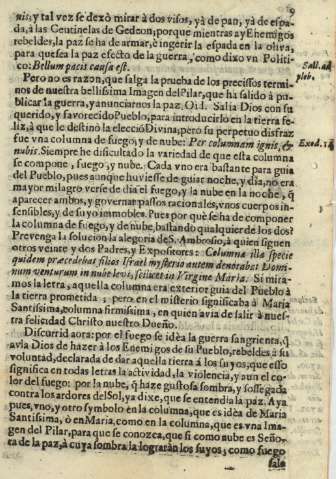 9
ris, y tal vez se dexò mirar à dos visos, yà de pan, yà de espa-
da, à las Centinelas de Gedeon, porque mientras ay Enemigos
rebeldes, la paz se ha de armar, è ingerir la espada en la oliva,
para que sea la paz efecto de la guerra, como dixo vn Politi-
co: Bellum pacis causa est.
Sall. ad
pleb.
Pero no es razon, que salga la prueba de los precissos termi-
nos de nuestra bellissima Imagen del Pilar, que ha salido à pu-
blicar la guerra, y anunciarnos la paz. Oid. Salia Dios con su
querido, y favorecido Pueblo, para introducirlo en la tierra fe-
liz, à que le destinò la eleccion Divina; pero su perpetuo disfraz
fue vna columna de fuego, y de nube: Per columnam ignis, &
nubis. Siempre he dificultado la variedad de que esta columna
Exod. 14
se compone, fuego, y nube. Cada vno era bastante para guia
del Pueblo, pues aunque huviesse de guiar noche, y dia, no era
mayor milagro verse de dia el fuego, y la nube en la noche, q̃
aparecer ambos, y governar passos racionales, vnos cuerpos in-
sensibles, y de suyo immobles. Pues por què se ha de componer
la columna de fuego, y de nube, bastando qualquier de los dos?
Prevenga la solucion la alegoria de S. Ambrosio, à quien siguen
otros veinte y dos Padres, y Expositores: Columna illa specie
quidem præcedebat filios Israel mysterio autem denotabat Domi-
num venturum in nube levi, scilicet in Virgine Maria. Si mira-
mos la letra, aquella columna era exterior guia del Pueblo à
la tierra prometida; pero en el misterio significaba à Maria
Santissima, columna firmissima, en quien avia de salir à nues-
tra felicidad Christo nuestro Dueño.
Discurrid aora: por el fuego se idèa la guerra sangrienta, q̃
avia Dios de hazer à los Enemigos de su Pueblo, rebeldes à su
voluntad, declarada de dar aquella tierra à los suyos, que esso
significa en todas letras la actividad, la violencia, y aun el co-
lor del fuego: por la nube, q̃ haze gustosa sombra, y sossegada
contra los ardores del Sol, ya dixe, que se entendia la paz. Aya
pues, vno, y otro symbolo en la columna, que es idèa de Maria
Santissima, ò en Maria, como en la columna, que es vna Ima-
gen del Pilar, para que se conozca, que si como nube es Seño-
ra de la paz, à cuya sombra la lograràn los suyos, como fuego
sale